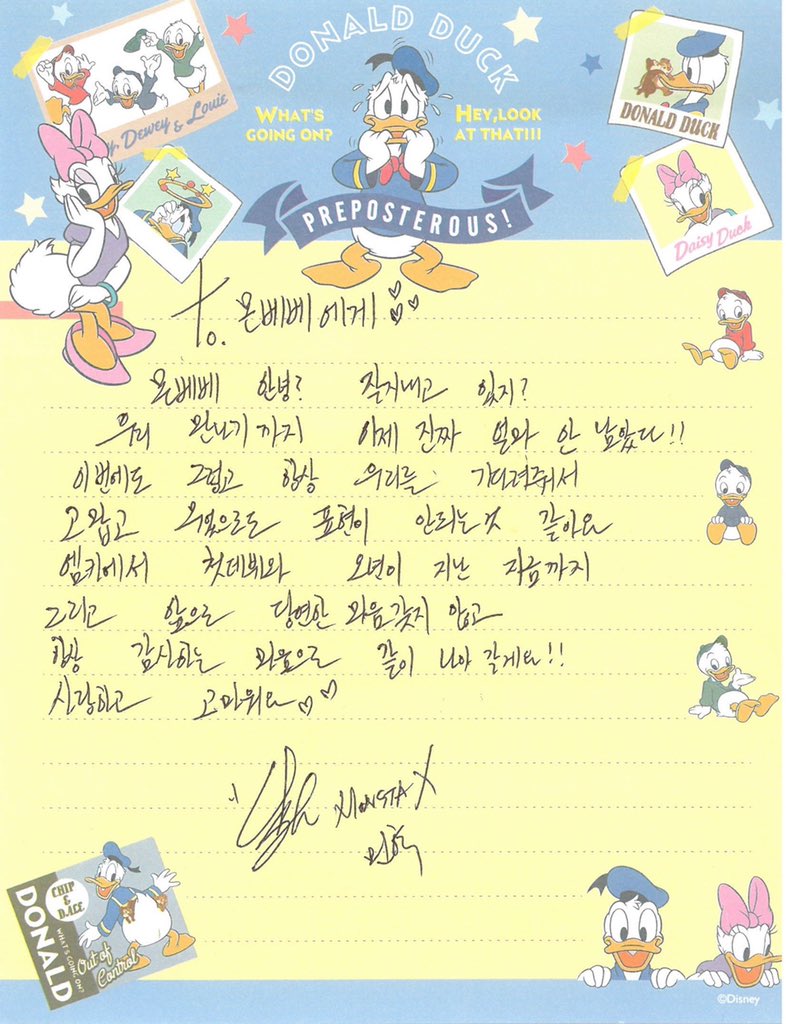 DONALD DUCK
WHAT'S GOING ON?
HEY, LOOK AT THAT!!!
PREPOSTEROUS!
Dewey & Louie
DONALD DUCK
Daisy Duck
To. 몬베베에게 ♡♡♡
몬베베 안녕? 잘지내고 있지?
우리 만나기까지 이제 진짜 얼마 안 남았다!!
이번에도 그렇고 항상 우리를 기다려줘서
고맙고 무엇으로도 표현이 안되는것 같아요
엠카에서 첫데뷔와 오년이 지난 지금까지
그리고 앞으로 당연한 마음갖지 않고
항상 감사하는 마음으로 같이 나아 갈게요!!
사랑하고 고마워요♡♡
MONSTA X
민혁
CHIP & DALE
DONALD
WHAT'S GOING ON?
Out of Control
©Disney